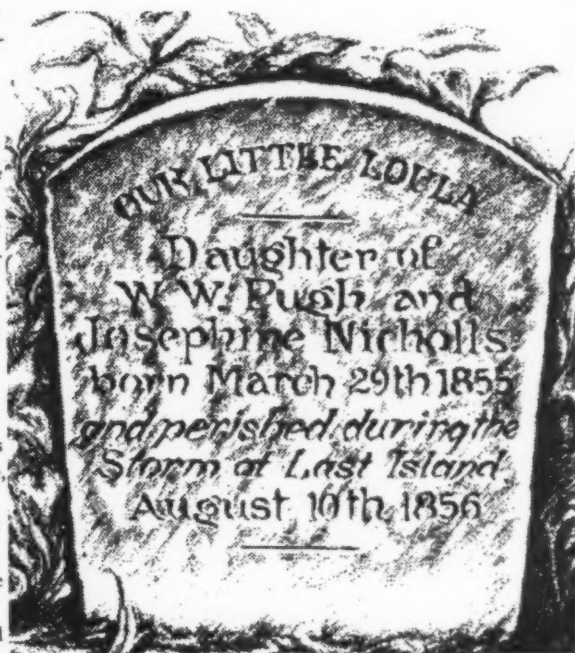 OUR LITTLE LOULA
Daughter of
W. W. Pugh and
Josephine Nicholls
born March 29th 1855
and perished during the
Storm at Last Island
August 10th 1856